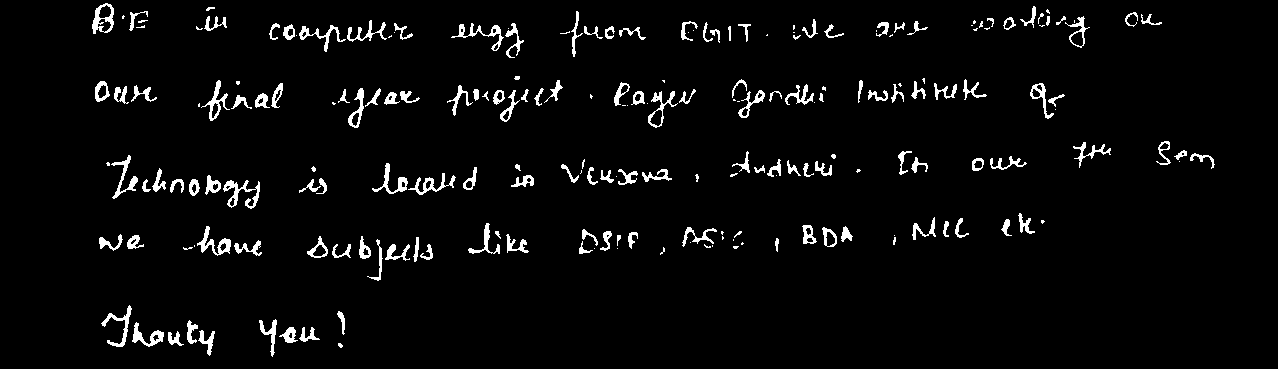 B.E in computer engg from RGIT. We are working on
our final year project. Rajiv Gandhi Institute of
Technology is located in Versova, Andheri. In our 7th Sem
we have subjects like DSIP, , BDA, MCC etc.
Thank you!